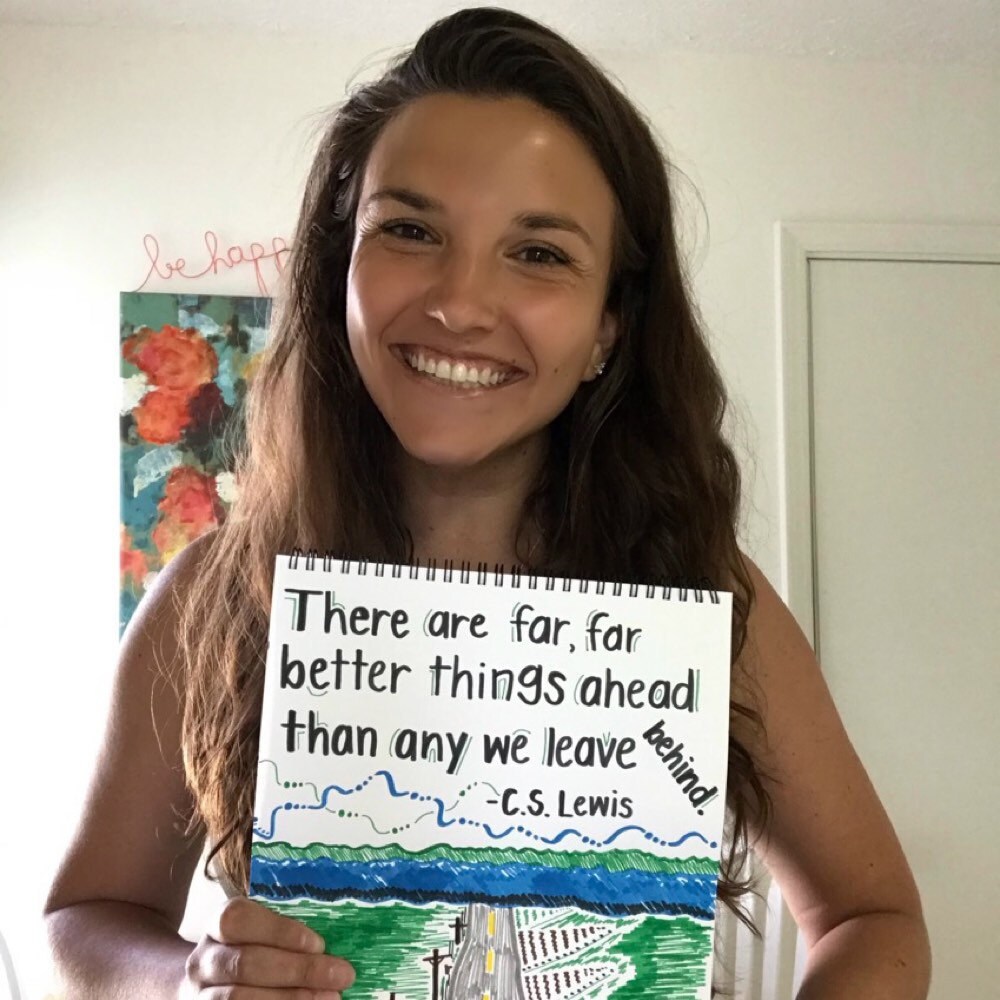 be happ
There are far, far
better things ahead
than any we leave behind.
-C.S. Lewis